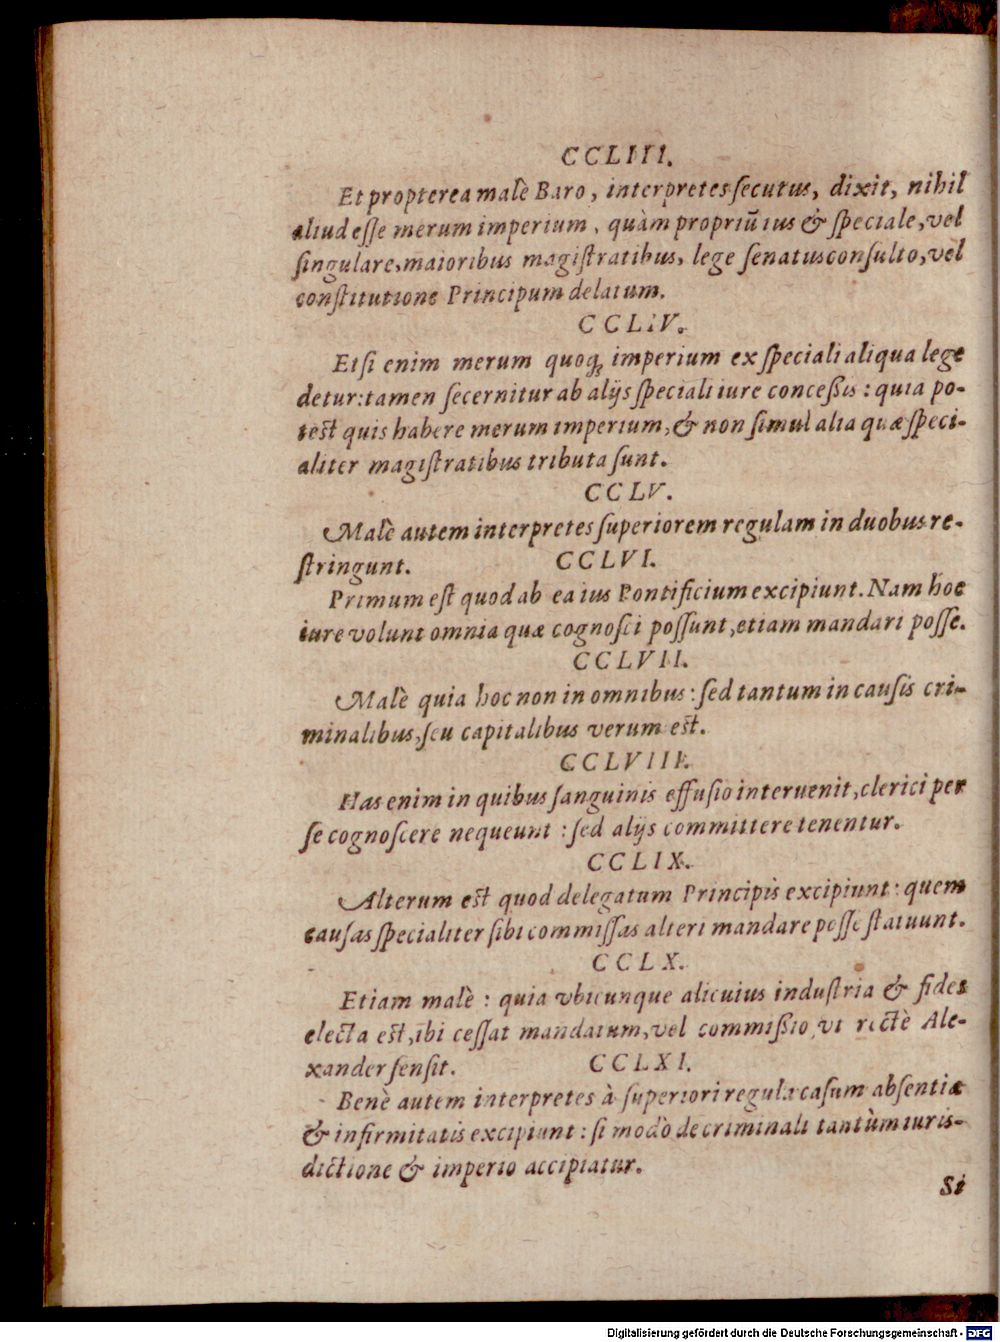 CCLIII.
Et propterea malè Baro, interpretes secutus, dixit, nihil
aliud esse merum imperium, quàm propriũ ius & speciale, vel
singulare, maioribus magistratibus, lege senatusconsulto, vel
constitutione Principum delatum.
CCLIV.
Etsi enim merum quoq; imperium ex speciali aliqua lege
detur: tamen secernitur ab alijs speciali iure concessis: quia po-
test quis habere merum imperium, & non simul alia quæ speci-
aliter magistratibus tributa sunt.
CCLV.
Malè autem interpretes superiorem regulam in duobus re-
stringunt. CCLVI.
Primum est quod ab ea ius Pontificium excipiunt. Nam hoc
iure volunt omnia quæ cognosci possunt, etiam mandari posse.
CCLVII.
Malè quia hoc non in omnibus: sed tantum in causis cri-
minalibus, seu capitalibus verum est.
CCLVIII.
Has enim in quibus sanguinis effusio interuenit, clerici per
se cognoscere nequeunt: sed alijs committere tenentur.
CCLIX.
Alterum est quod delegatum Principis excipiunt: quem
causas specialiter sibi commissas alteri mandare posse statuunt.
CCLX.
Etiam malè: quia vbicunque alicuius industria & fides
electa est, ibi cessat mandatum, vel commissio, vt rectè Ale-
xander sensit. CCLXI.
Benè autem interpretes à superiori regula casum absentiæ
& infirmitatis excipiunt: si modò de criminali tantùm iuris-
dictione & imperio accipiatur.
Si
Digitalisierung gefördert durch die Deutsche Forschungsgemeinschaft - DFG